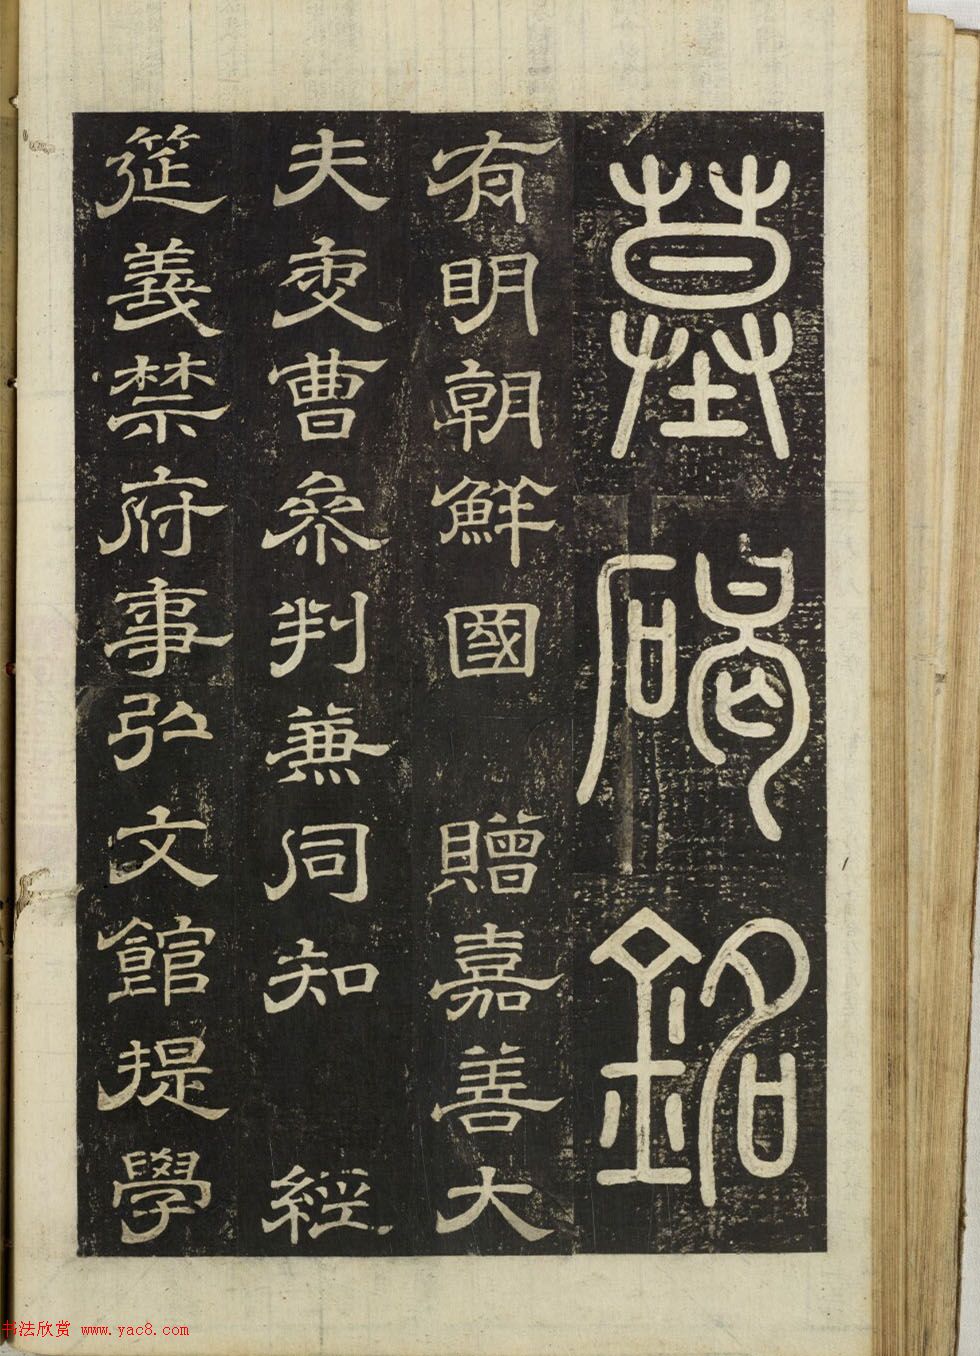 墓碣銘
有明朝鮮國 贈嘉善大
夫吏曹參判兼同知 經
筵義禁府事弘文館提學
书法欣赏 www.yac8.com